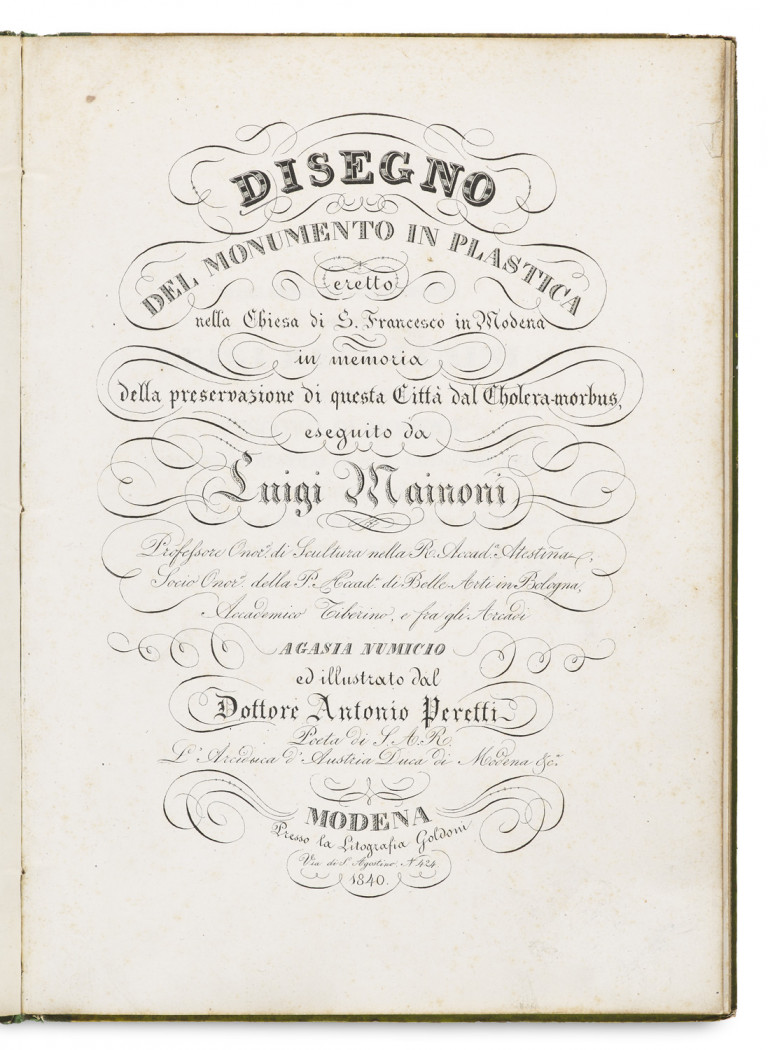 DISEGNO
DEL MONUMENTO IN PLASTICA
eretto
nella Chiesa di S. Francesco in Modena
in memoria
della preservazione di questa Città dal Cholera-morbus,
eseguito da
Luigi Mainoni
Professore Onor.º di Scultura nella R. Accad.ª Atestina,
Socio Onor.º della P. Accad.ª di Belle Arti in Bologna,
Accademico Tiberino, e fra gli Arcadi
AGASIA NUMICIO
ed illustrato dal
Dottore Antonio Peretti
Poeta di S. A. R.
L'Arciduca d'Austria Duca di Modena &c.ª
MODENA
Presso la Litografia Goldoni
Via di S. Agostino N. 424
1840.